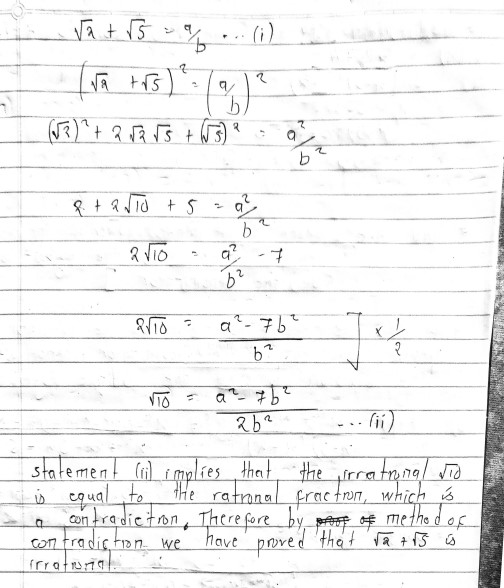 √2 + √5 = a/b ... (i)
(√2 + √5)² = (a/b)²
(√2)² + 2√2√5 + (√5)² = a²/b²
2 + 2√10 + 5 = a²/b²
2√10 = a²/b² - 7
2√10 = (a² - 7b²)/b² ] × 1/2
√10 = (a² - 7b²)/2b² ... (ii)
statement (ii) implies that the irrational √10
is equal to the rational fraction, which is
a contradiction. Therefore by proof of method of
contradiction we have proved that √2 + √5 is
irrational.